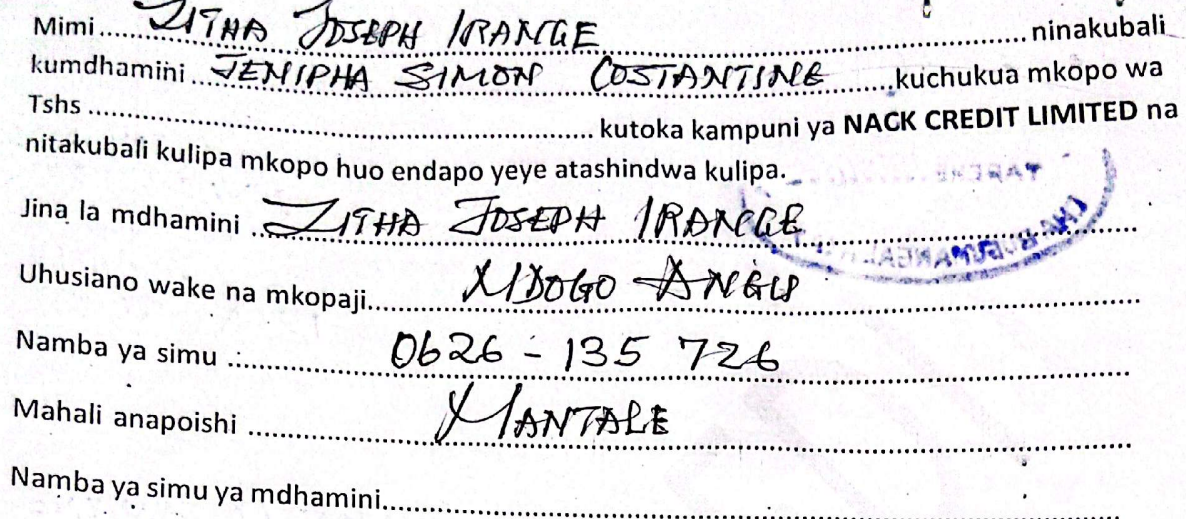 Mimi.....ZITHA JOSEPH IRANGE.....ninakubali
kumdhamini...JENIPHA SIMON COSTANTINE.....kuchukua mkopo wa
Tshs.....kutoka kampuni ya NACK CREDIT LIMITED na
nitakubali kulipa mkopo huo endapo yeye atashindwa kulipa.
Jina la mdhamini...ZITHA JOSEPH IRANGE.....
Uhusiano wake na mkopaji.....MDOGO ANGU.....
Namba ya simu .:.....0626 - 135 726.....
Mahali anapoishi.....MANTALE.....
Namba ya simu ya mdhamini.....